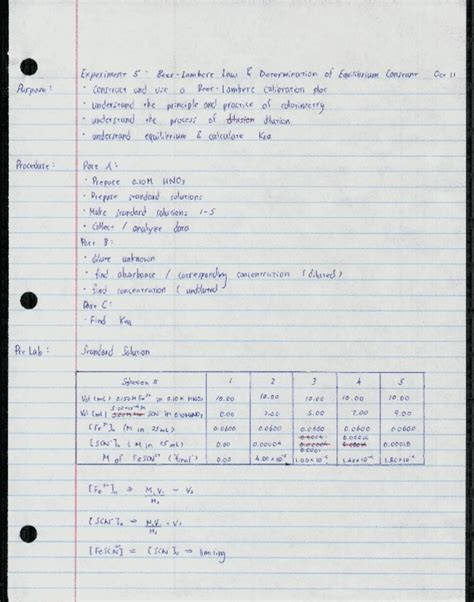 Experiment 5 : Beer-Lambert Law & Determination of Equilibrium Constant Oct 11
Purpose : · Construct and use a Beer-Lambert calibration plot
· understand the principle and practice of colorimetry
· understand the process of dilution
· understand equilibrium & calculate Keq
Procedure : Part A :
· Prepare 0.10M HNO3
· Prepare standard solutions
· Make standard solutions 1-5
· Collect / analyze data
Part B :
· dilute unknown
· find absorbance / corresponding concentration (diluted)
· find concentration (undiluted)
Part C :
· Find Keq
Pre Lab : Standard Solution
Solution # 1 2 3 4 5
Vol (mL) 0.150M Fe3+ in 0.10M HNO3 10.00 10.00 10.00 10.00 10.00
Vol (mL) SCN- in 0.10M HNO3 0.00 2.00 5.00 7.00 9.00
[Fe3+]o (M in 25mL) 0.0600 0.0600 0.0600 0.0600 0.0600
[SCN-]o (M in 25mL) 0.00 0.00004 0.0001 0.00018
M of FeSCN2+ (final) 0.00 4.00×10-5 1.00×10-4 1.40×10-4 1.80×10-4
[Fe3+]o ⇒ M1V1
[SCN-]o ⇒ M1V1
[FeSCN2+] = [SCN-]o ⇒ limiting